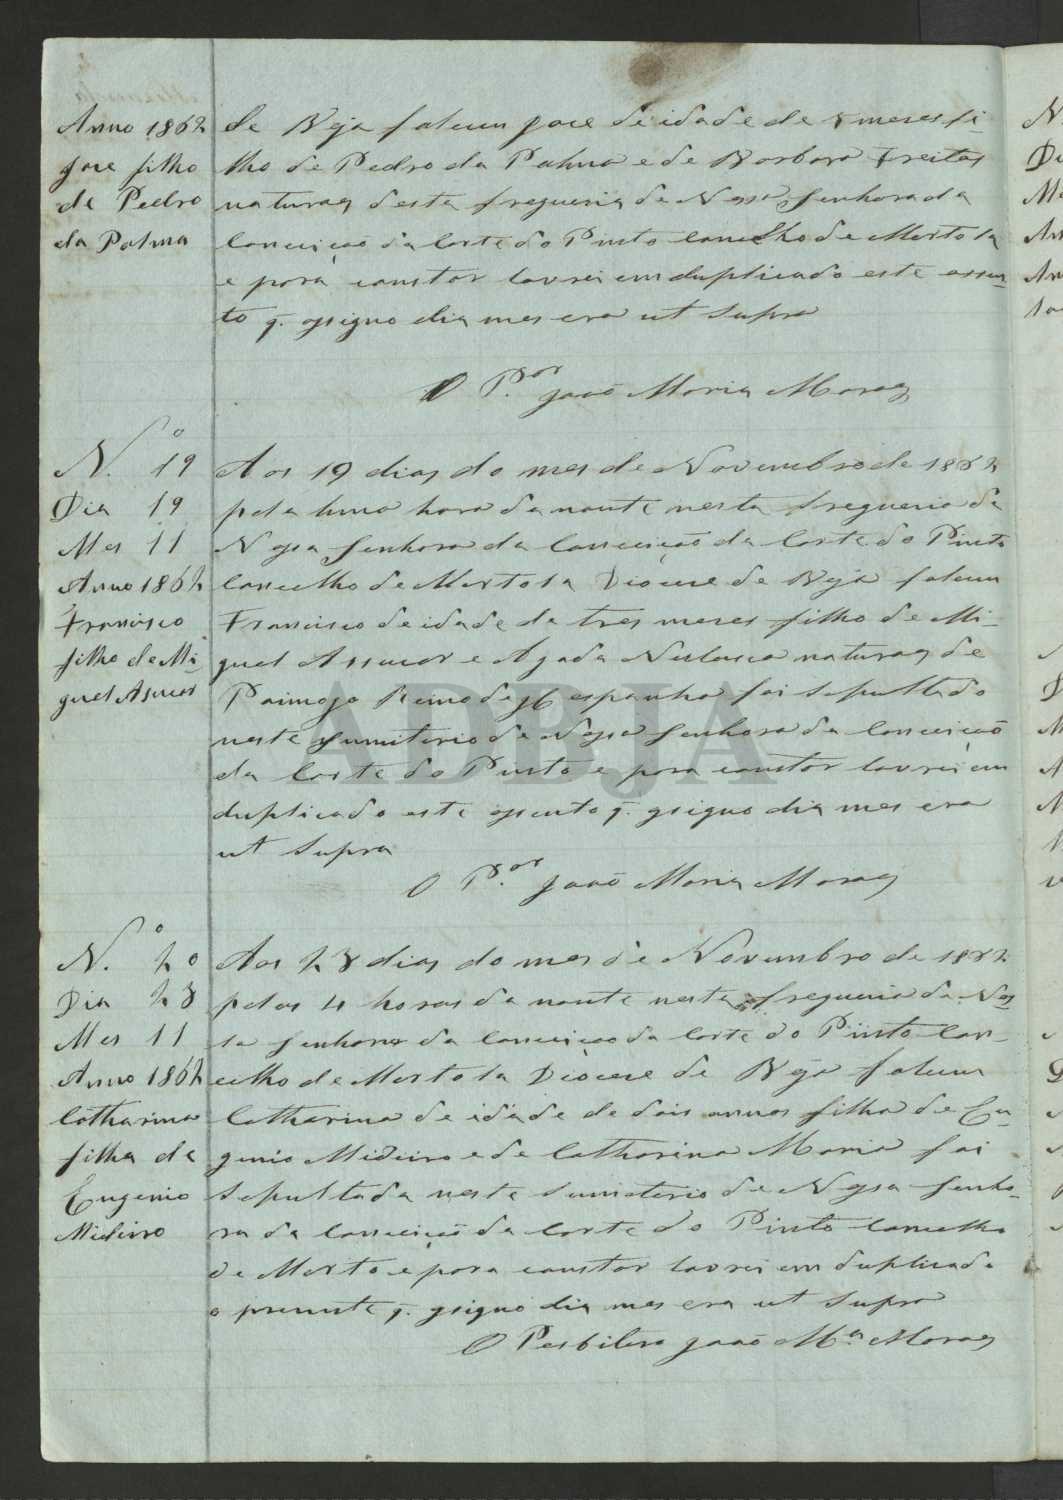 Anno 1862
Joze filho
de Pedro
da Palma
de Beja faleceu Joze de idade de 8 mezes fi-
lho de Pedro da Palma e de Barbara Freitas
naturaes desta freguezia de Nossa Senhora da
Conceição da Corte do Pinto Concelho de Mertola
e para constar lavrei em duplicado este assen-
to q. assigno dia mes era ut supra
O P.or João Maria Moraes
N.o 19
Dia 19
Mes 11
Anno 1862
Francisco
filho de Mi-
guel Asucar
Aos 19 dias do mes de Novembro de 1862
pela huma hora da noute nesta freguezia de
Nossa Senhora da Conceição da Corte do Pinto
Concelho de Mertola Diocese de Beja faleceu
Francisco de idade de tres mezes filho de Mi-
guel Assucar e Agada naturaes de
Paimogo Reino de Hespanha foi sepultado
neste sumiterio de Nossa Senhora da Conceição
da Corte do Pinto e para constar lavrei em
duplicado este assento q. assigno dia mes era
ut supra
O P.or João Maria Moraes
N.o 20
Dia 28
Mes 11
Anno 1862
Catharina
filha de
Eugenio
Mideiro
Aos 28 dias do mes de Novembro de 1862
pelas 4 horas da noute nesta freguezia de Nos-
sa Senhora da Conceição da Corte do Pinto Con-
celho de Mertola Diocese de Beja faleceu
Catharina de idade de dois annos filha de Eu-
genio Mideiro e de Catharina Maria foi
sepultada neste sumiterio de Nossa Senho-
ra da Conceição da Corte do Pinto Concelho
de Merto e para constar lavrei em duplicado
o prezente q. assigno dia mes era ut supra
O Presbitero João M.a Moraes
ADBJA